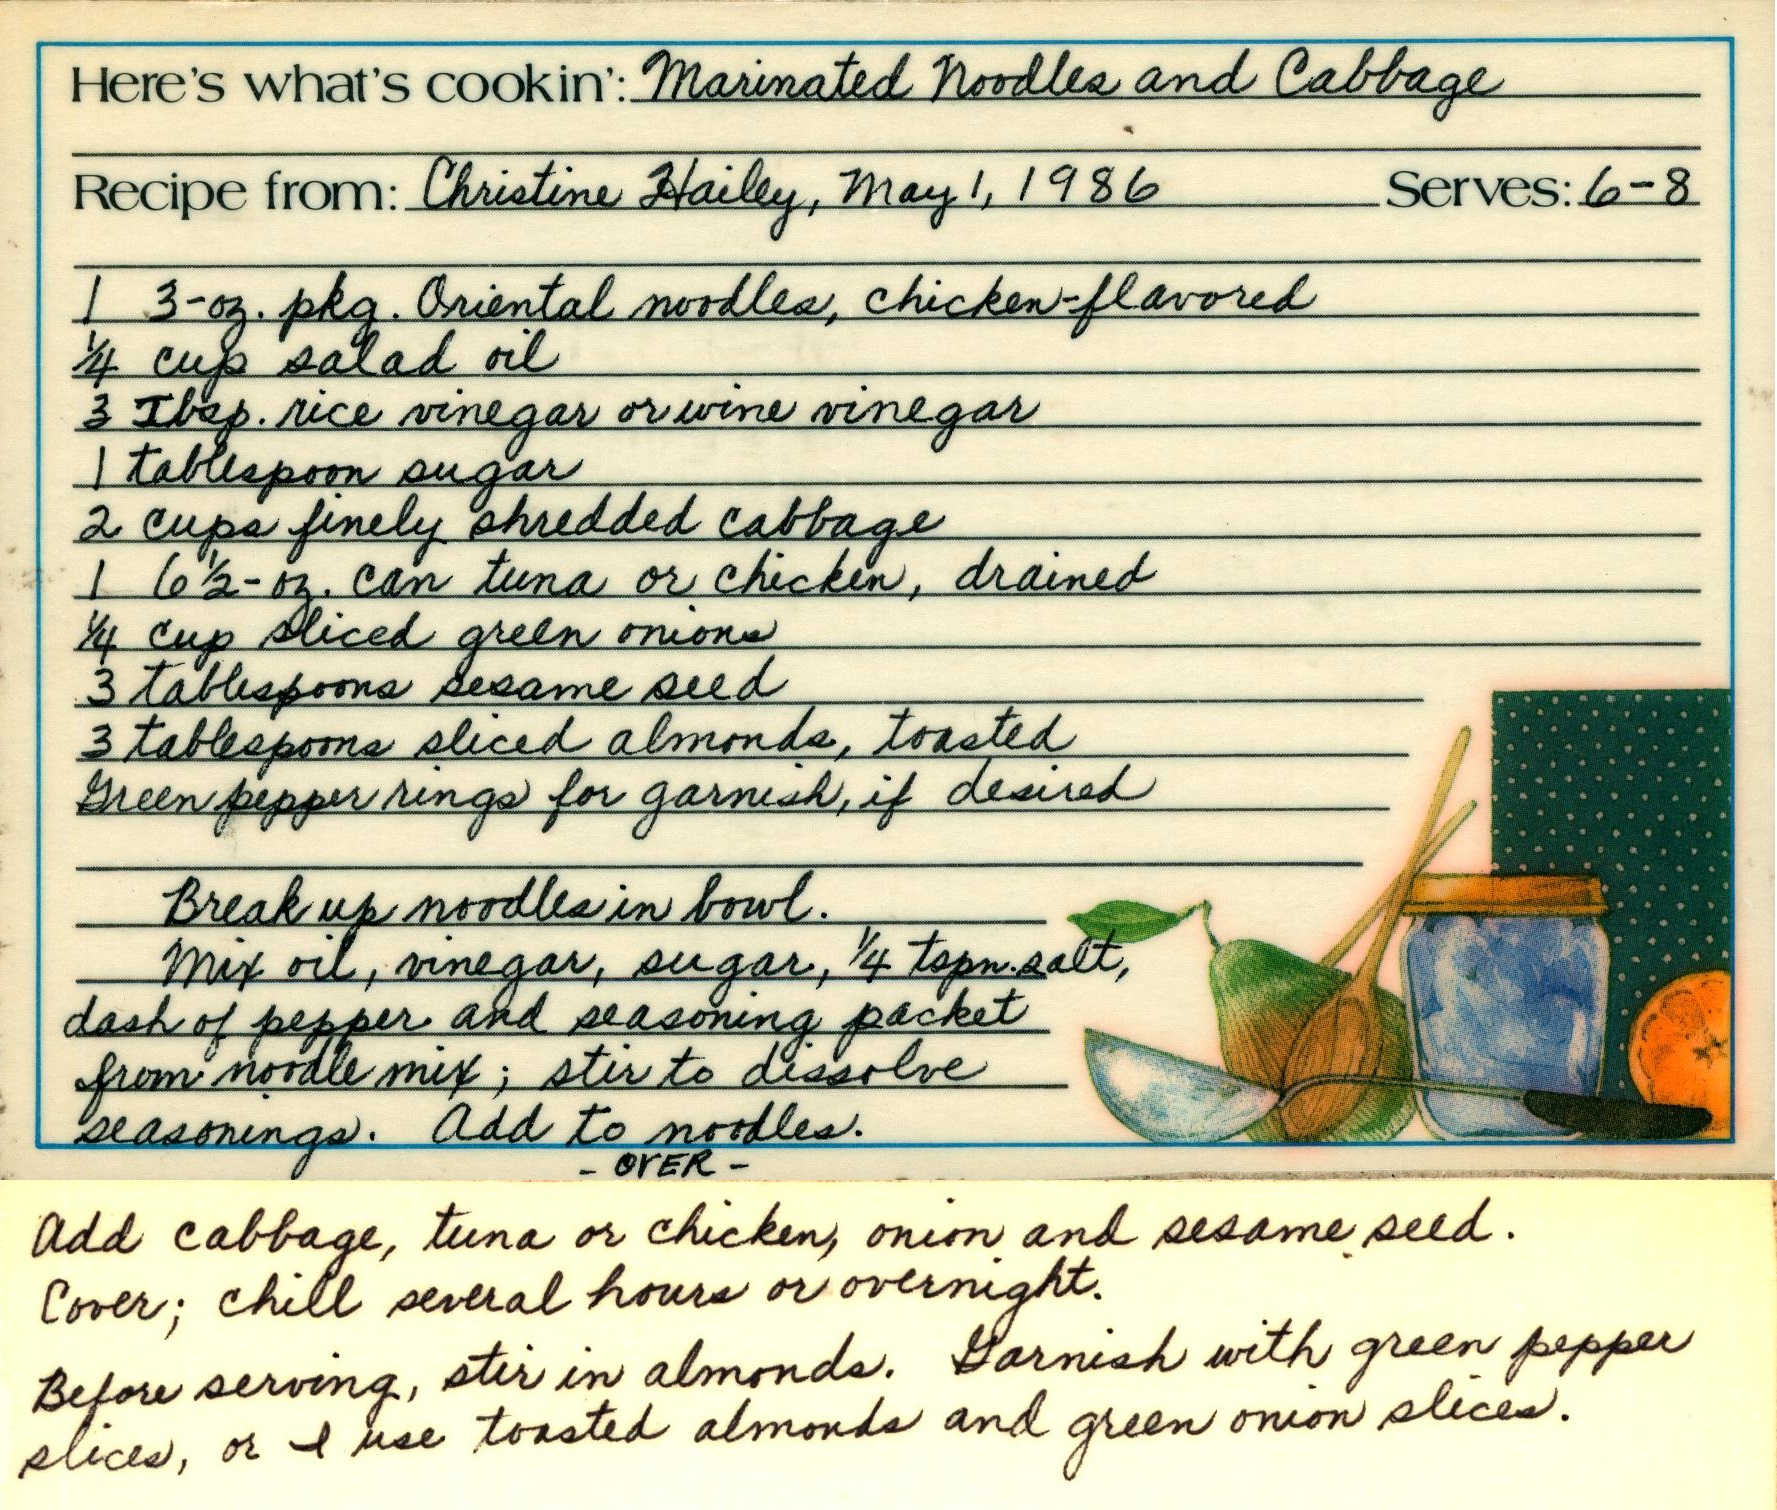 Here's what's cookin': Marinated Noodles and Cabbage
Recipe from: Christine Hailey, May 1, 1986 Serves: 6-8
1 3-oz. pkg. Oriental noodles, chicken-flavored
1/4 cup salad oil
3 Tbsp. rice vinegar or wine vinegar
1 tablespoon sugar
2 cups finely shredded cabbage
1 6 1/2-oz. can tuna or chicken, drained
1/4 cup sliced green onions
3 tablespoons sesame seed
3 tablespoons sliced almonds, toasted
Green pepper rings for garnish, if desired
Break up noodles in bowl.
Mix oil, vinegar, sugar, 1/4 tspn. salt,
dash of pepper and seasoning packet
from noodle mix; stir to dissolve
seasonings. Add to noodles.
- OVER -
Add cabbage, tuna or chicken, onion and sesame seed.
Cover; chill several hours or overnight.
Before serving, stir in almonds. Garnish with green pepper
slices, or I use toasted almonds and green onion slices.